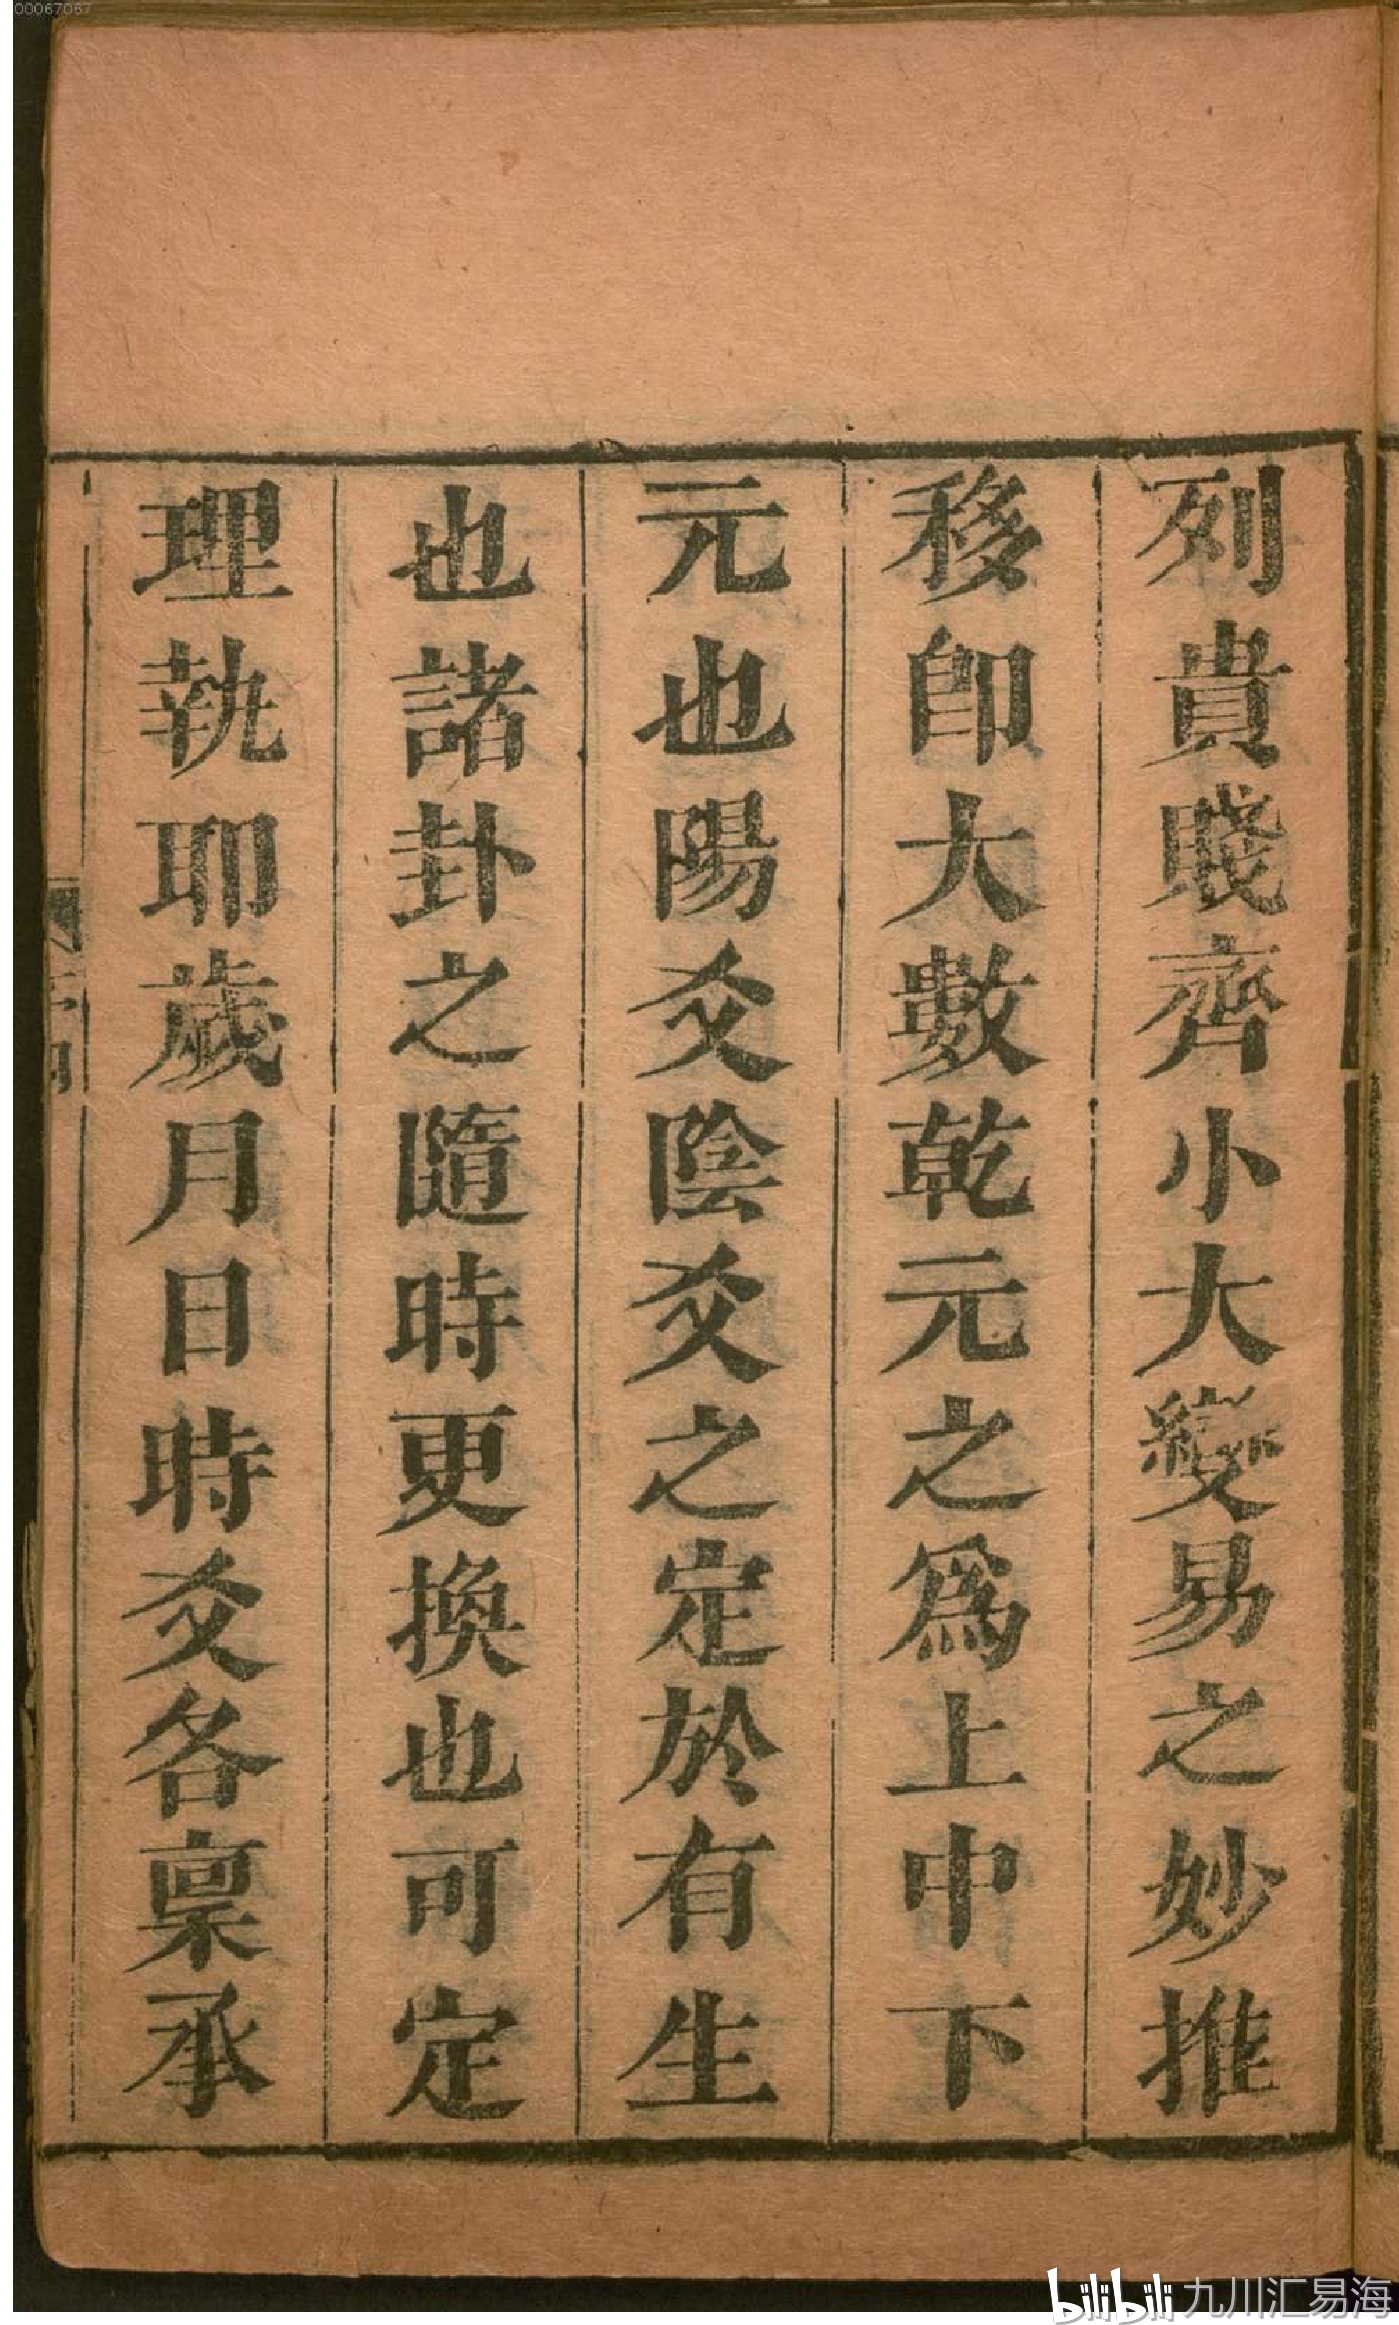 00067067
列貴賤齊小大變易之妙推
移卽大數乾元之爲上中下
元也陽爻陰爻之定於有生
也諸卦之隨時更換也可定
理執耶歲月日時爻各稟承
bilibili 九川汇易海